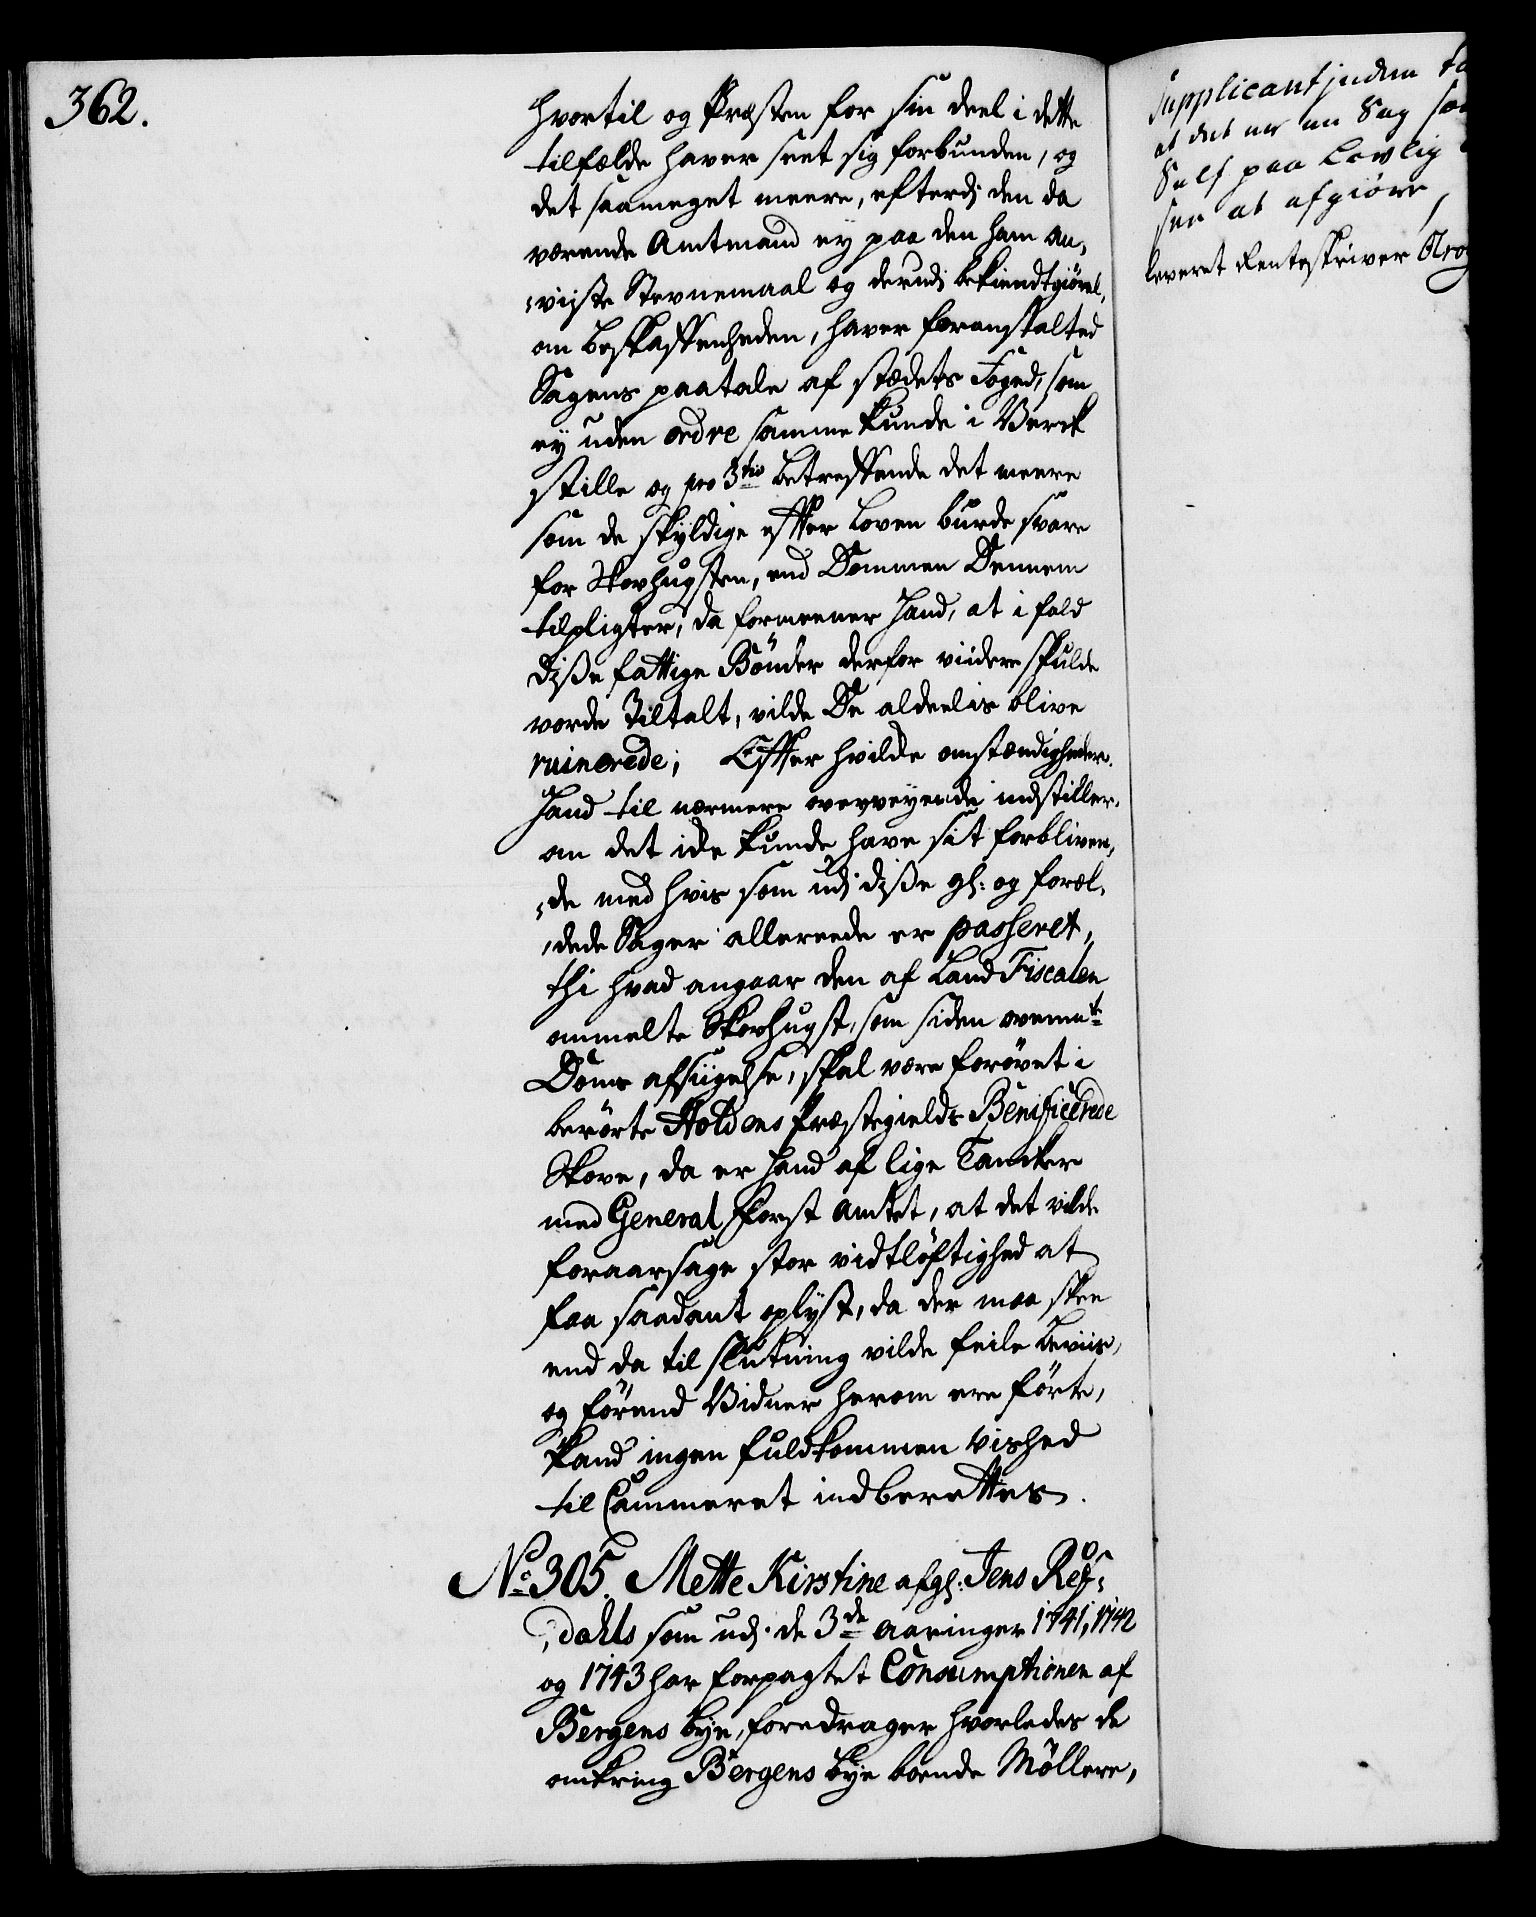 362.
hvortil og Præsten for sin deel i dette
tilfælde haver seet sig forbunden, og
det saameget meere, efterdj den da
værende Amtmand ey paa den ham an-
-viste Stevnemaal og derudj bekiendtgiørel,
om beskaffenheden, haver foranstalted
Sagens paatale af stædets Foged, som
ey uden ordre samme kunde i Verck
stille og pro 3tio betreffende det meere
som de skyldige efter Loven burde svare
for Skovhugsten, end Dommen Dennem
tilpligter, da formeener Hand, at i fald
disse fattige Bönder derfor viidere skulde
vorde Tiltalt, vilde De aldeelis blive
ruinerede; Efter hvilde omstændigheder.
Hand til nærmere overveyende indstiller,
om det icke kunde have sit forbliven,
-de med hvis som udj disse gl: og foræl,
-dede Sager allereede er passeret,
thi hvad angaar den af Land Fiscalen
anmelte Skovhugst, som siden ovenmte
Doms afsiigelse, skal være forövet i
berörte Holdens Præstegields Beneficerede
Skove, da er Hand af lige Tancker
med General Forst Amtet, at det vilde
foraarsage stor vidtlöftighed at
faa saadant oplyst, da der maa skee
end da til slutning vilde feile beviis,
og förend Vidner herom ere förte,
kand ingen fuldkommen Vished
til Cammeret indberettes.
No. 305. Mette Kirstine afgl: Jens Reꝛs-
-dahls som udj de 3de Aaringer 1741, 1742
og 1743 har forpagtet Consumptionen af
Bergens bye, foredrager hvorledes de
omkring Bergens bye boende Möllere,
Supplicant jndem
at det er en Sag
Self paa Lovlig
see at afgiöre,
leveret Renteskriver